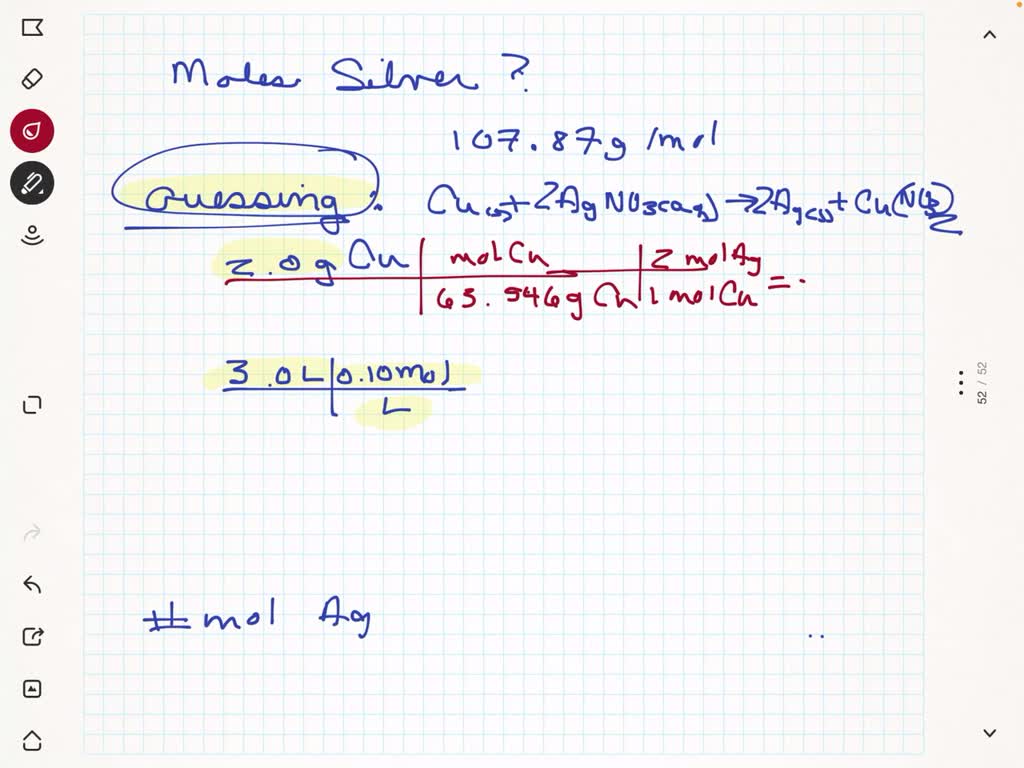 Moles Silver ?
107.87g/mol
Guessing : Cu(s) + 2AgNO3(aq) → 2Ag(s) + Cu(NO3)2
2.0g Cu | mol Cu | 2 mol Ag
63.546g Cu | 1 mol Cu = .
3.0L | 0.10mol
L
52 / 52
# mol Ag